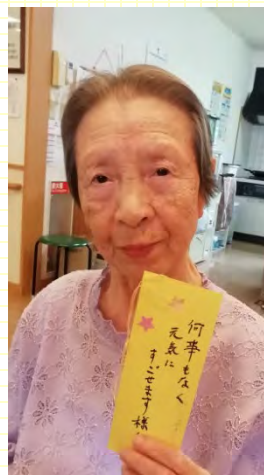 何事もなく
元気に
すごせます様